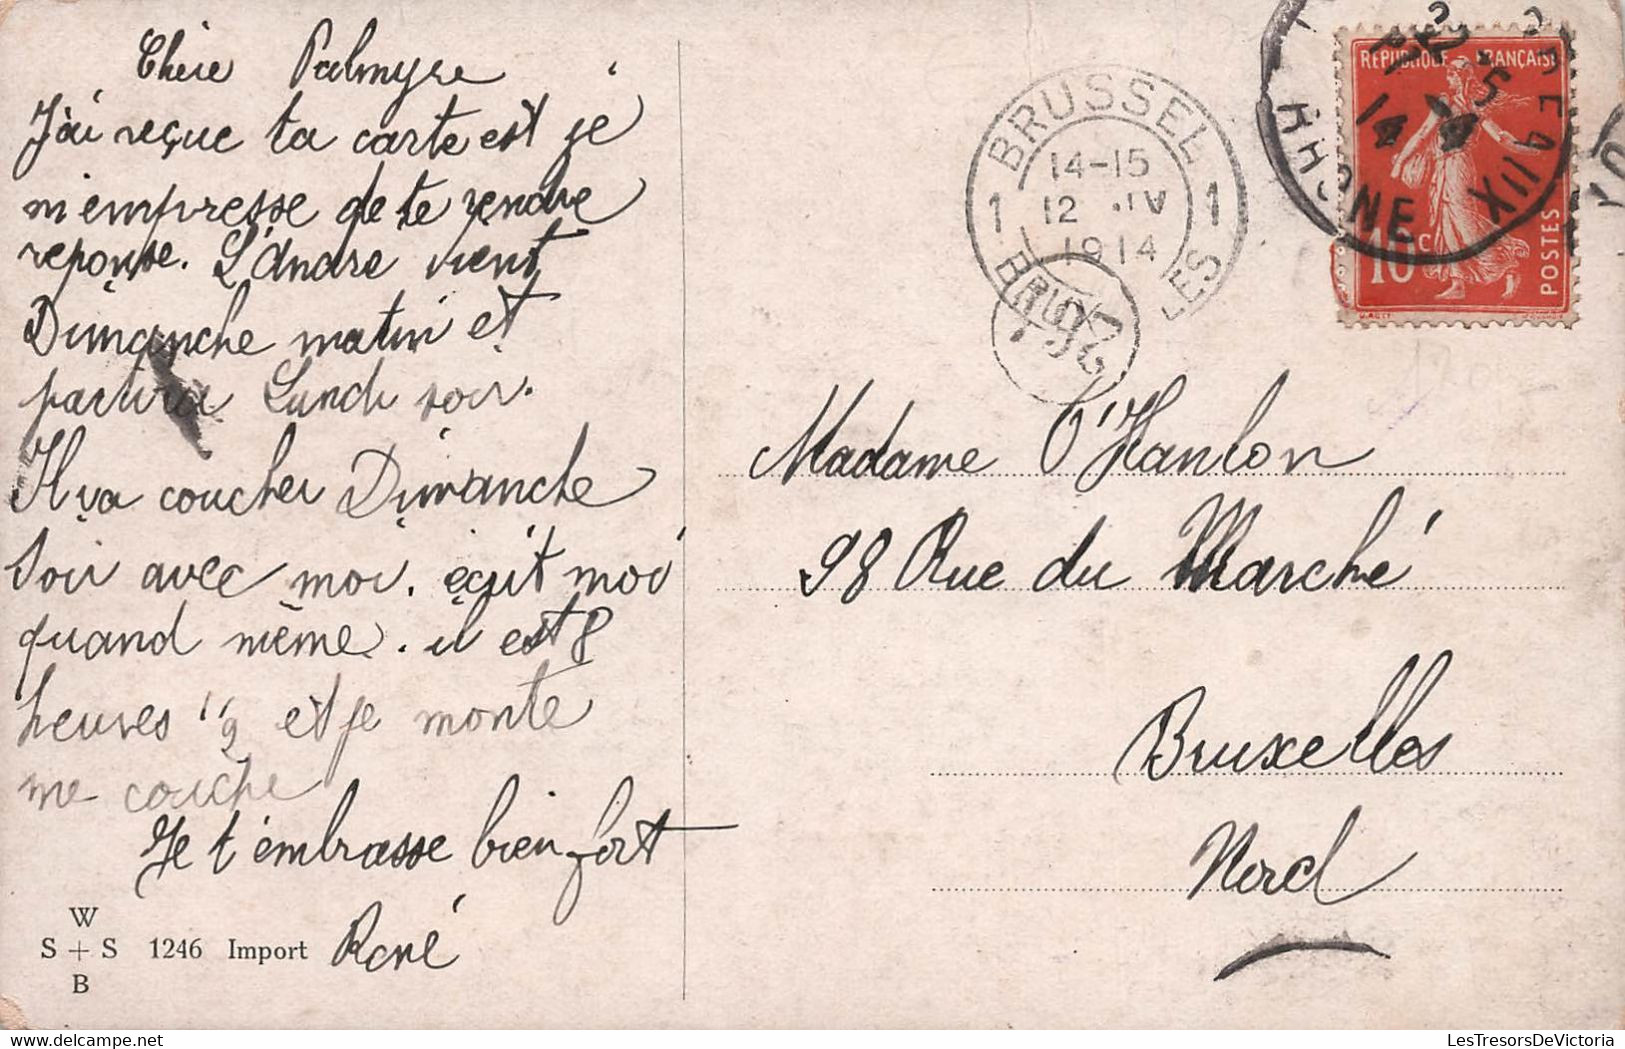 Chère Palmyre
J'ai reçue ta carte est je
m'empresse de te rendre
reponse. L'Andre vient
Dimanche matin et
partira Lundi soir.
Il va coucher Dimanche
Soir avec moi. eçrit moi
quand même. il est 8
heures 1/2 et je monte
me couche
Je t'embrasse bien fort
René
W
S + S 1246 Import
B
1 BRUSSEL 1
14-15
12 IV
1914
REPUBLIQUE FRANÇAISE
10 c
POSTES
RHONE
Madame O'Hanlon
98 Rue du Marché
Bruxelles
Nord
LesTresorsDeVictoria